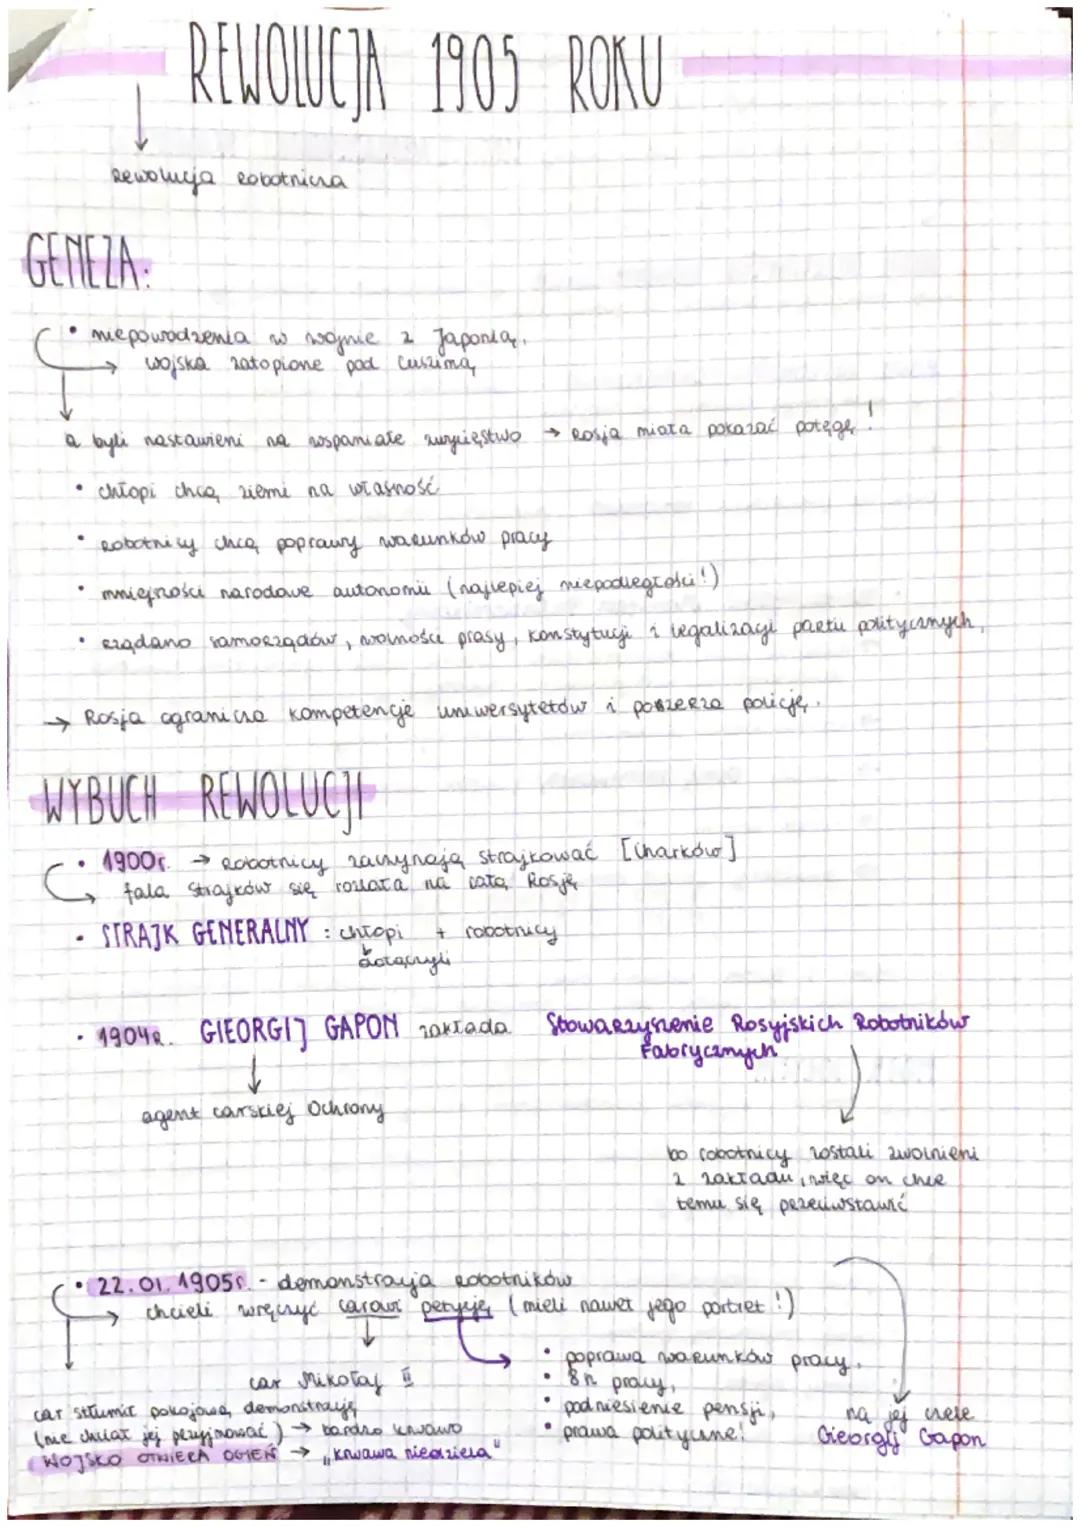 REWOLUCJA 1905 ROKU
rewolucja robotnicza
GENEZA:
• niepowodzenia w wojnie z Japonią.
→ wojska zatopione pod Cuszimą
a byli nastawieni na wspaniałe zwycięstwo → Rosja miała pokazać potęgę!
• chłopi chcą ziemi na własność
• robotnicy chcą poprawy warunków pracy
• mniejności narodowe autonomii (najlepiej niepodległości!)
• rządano samorządów, wolności prasy, konstytucji i legalizacji partii politycznych,
→ Rosja ogranicza kompetencje uniwersytetów i poszerza policję.
WYBUCH REWOLUCJI
• 1900r. → robotnicy zaczynają strajkować [Charków]
→ fala strajków się rozlała na całą Rosję
• STRAJK GENERALNY : chłopi + robotnicy
dołączyli
• 1904r. GIEORGIJ GAPON zakłada Stowarzyszenie Rosyjskich Robotników
Fabrycznych
agent carskiej Ochrony
bo robotnicy zostali zwolnieni
z zakładu, więc on chce
temu się przeciwstawić
• 22.01.1905r. - demonstracja robotników
→ chcieli wręczyć carowi petycję (mieli nawet jego portret!)
• poprawa warunków pracy,
car Mikołaj II
• 8h pracy,
car stłumił pokojową demonstrację
• podniesienie pensji,
na jej czele
(nie chciał jej przyjmować) → bardzo krwawo
• prawa polityczne!
Gieorgij Gapon
WOJSKO OTWIERA OGIEŃ → „krwawa niedziela"